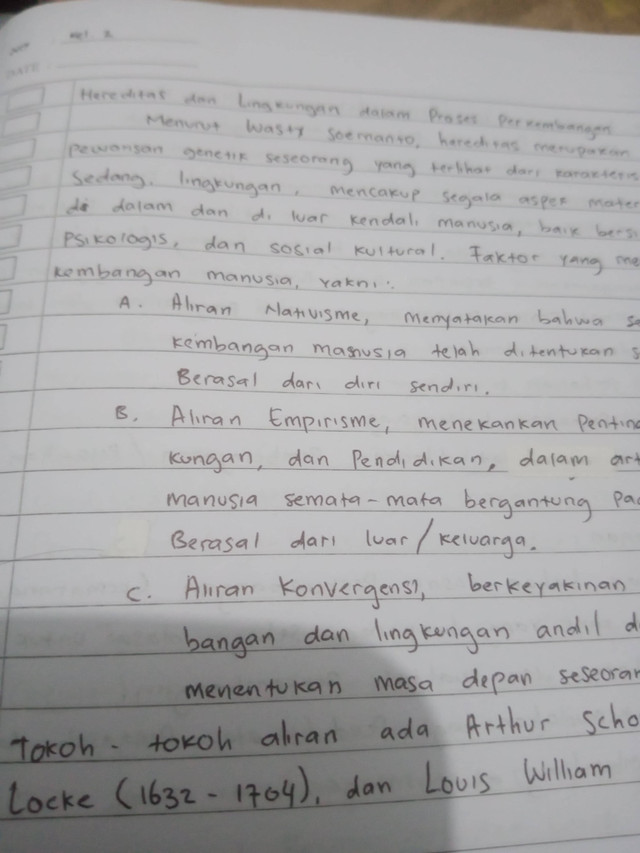 DATE
Hereditas dan Lingkungan dalam Proses Perkembangan
Menurut Wasty Soemanto, hereditas merupakan
pewarisan genetik seseorang yang terlihat dari karakteris
Sedang, lingkungan, mencakup segala aspek mater
di dalam dan di luar kendali manusia, baik bersi
psikologis, dan sosial kultural. Faktor yang me
kembangan manusia, yakni:
A. Aliran Nativisme, menyatakan bahwa se
kembangan manusia telah ditentukan s
Berasal dari diri sendiri.
B. Aliran Empirisme, menekankan Pentin
kungan, dan Pendidikan, dalam art
manusia semata-mata bergantung pa
Berasal dari luar/keluarga.
C. Aliran Konvergensi, berkeyakinan
bangan dan lingkungan andil d
menentukan masa depan seseoran
Tokoh-tokoh aliran ada Arthur Scho
Locke (1632-1704), dan Louis William